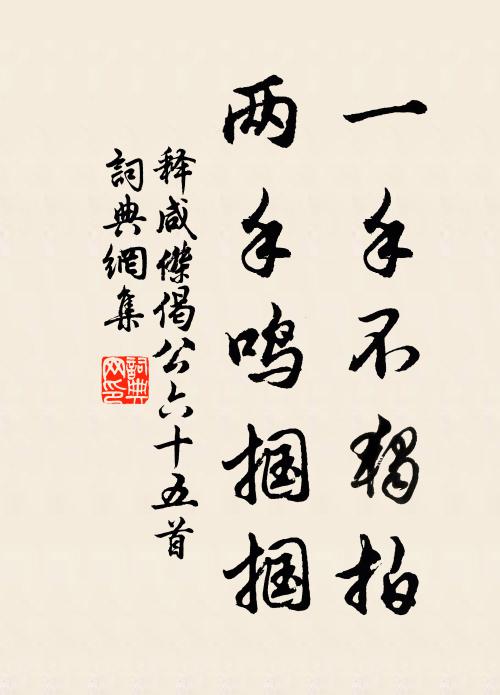 一手不獨拍
两手鸣掴掴
释咸傑偈公六十五首
詞典網集
詞典
网印